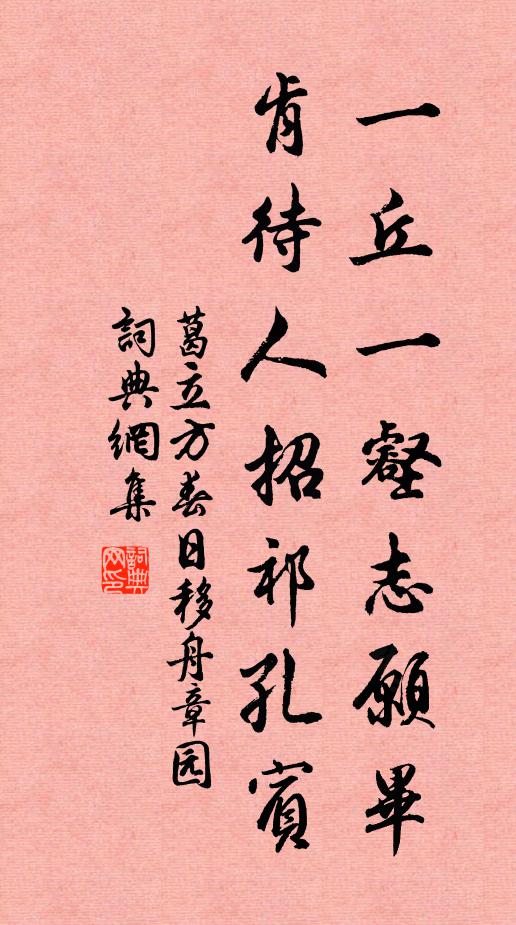 一丘一壑志願畢
肯待人招祁孔賓
葛立方春日移舟章园
詞典網集
詞典網印